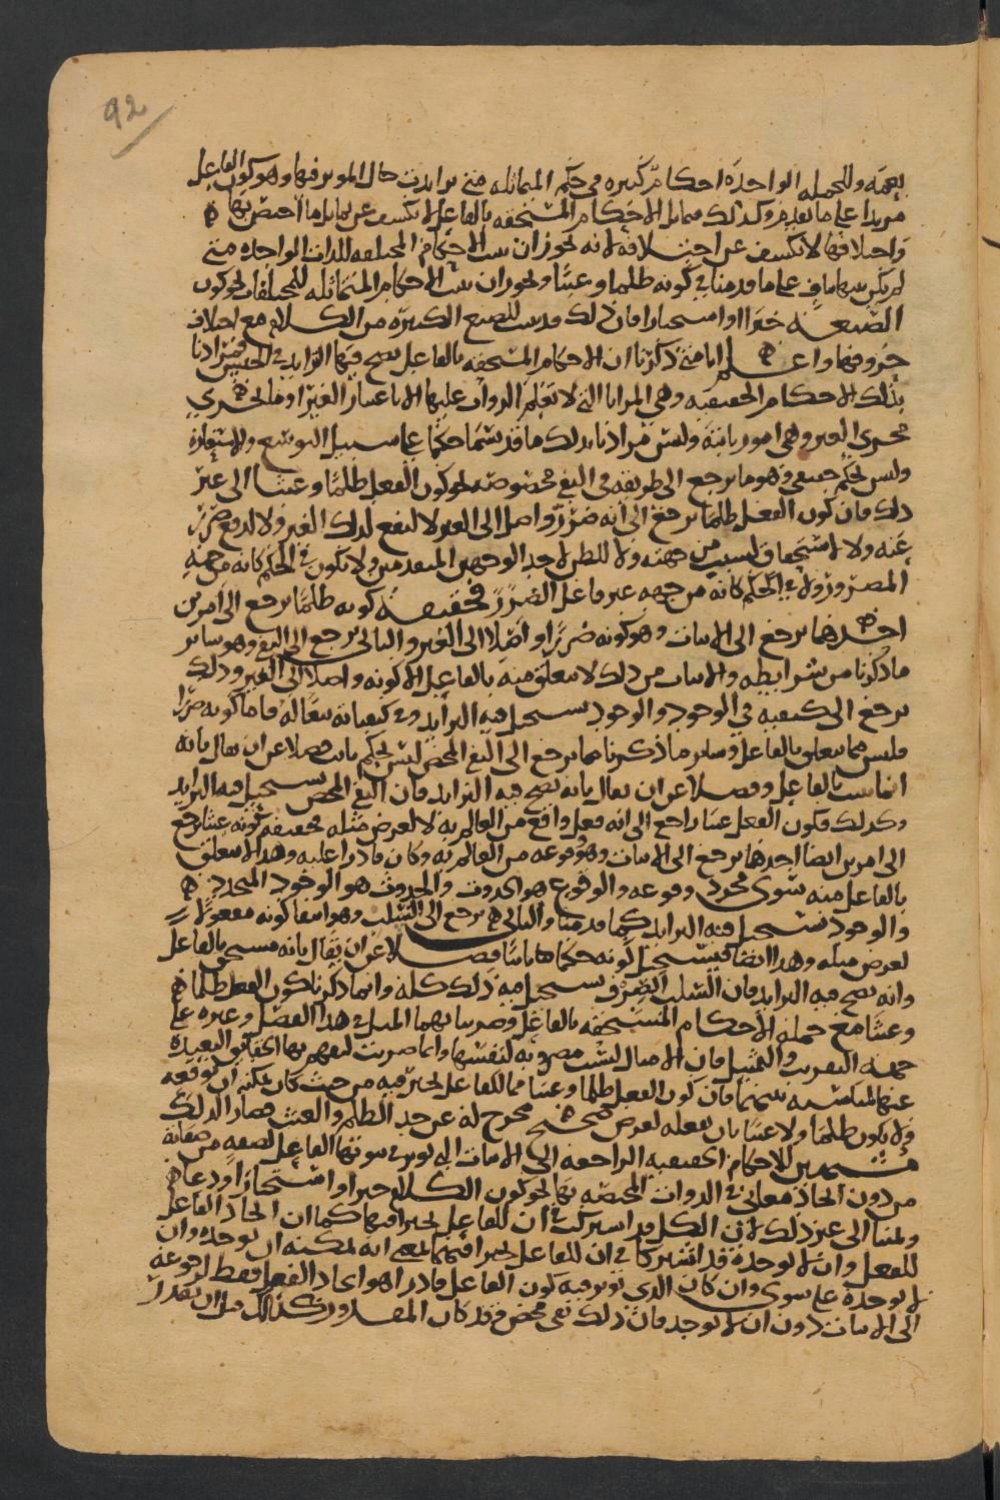 92
وللجمله الواحده احكام كثيره في حكم المتماثله متى تزايدت حال الموثر فيها وهو كون الفاعل
مريدا على ما تقدم وكذلك تماثل الاحكام المستحقه بالفاعل لا تكشف عن تماثل ما اختص بها
واختلافها لا تكشف عن اختلافه لانه يجوز ان تثبت الاحكام المختلفه للذات الواحده متى
لم يكن بينها تناف على ما قدمنا في كونه ظلما وعبثا ويجوز ان تثبت الاحكام المتماثله للمختلفات نحو كون
الصيغة خبرا او استخبارا فان ذلك قد يثبت للصيغ الكثيره من الكلام مع اختلاف
حروفها واعلم انا متى ذكرنا ان الاحكام المستحقه بالفاعل يصح فيها التزايد في الجنس فمرادنا
بذلك الاحكام الحقيقيه وهي المزايا التي لا تعلم الذوات عليها الا باعتبار الغير او ما يجري
مجرى الغير وهي امور ثابتة وليس مرادنا بذلك ما قد يسمى حكما على سبيل التوسع والاستعارة
وليس بحكم حقيقي وهو ما يرجع الى طريقه في النفي مخصوصه نحو كون الفعل ظلما وعبثا الى غير
ذلك فان كون الفعل ظلما يرجع الى انه ضرر واصل الى الغير لا لنفع لذلك الغير ولا لدفع ضرر
عنه ولا لاستحقاق من جهته ولا للظن لاحد الوجهين المتقدمين ولا يكون في الحكم كانه من جهة
المضرور ولا في الحكم كانه من جهه غير فاعل الضرر فحقيقة كونه ظلما يرجع الى امرين
احدهما يرجع الى الاثبات وهو كونه ضررا واصلا الى الغير والثاني يرجع الى النفي وهو سائر
ما ذكرنا من شرايطه والاثبات من ذلك لا يتعلق منه بالفاعل الا كونه واصلا الى الغير وذلك
يرجع الى كيفيه في الوجود والوجود يستحيل فيه التزايد وفي كيفياته فاما كونه ضررا
فليس مما يتعلق بالفاعل وسائر ما ذكرنا مما يرجع الى النفي المحض ليس بحكم ثابت فضلا عن ان يقال بانه
انما يثبت بالفاعل وفضلا عن ان يقال بانه يصح فيه التزايد فان النفي المحض يستحيل فيه التزايد
وكذلك فكون الفعل عبثا راجع الى انه فعل واقع من العالم به لا لغرض مثله فحقيقه كونه عبثا ترجع
الى امرين ايضا احدهما يرجع الى الاثبات وهو وقوعه من العالم به وكان قادرا عليه وهذا لا يتعلق
بالفاعل منه سوى مجرد وقوعه والوقوع هو الحدوث والحدوث هو الوجود المتجدد
والوجود يستحيل فيه التزايد كما قدمنا والثاني يرجع الى السلب وهو انتفا كونه مفعولا
لغرض مثله وهذا ايضا فيستحيل كونه حكما هاهنا فضلا عن ان يقال بانه مستحق بالفاعل
وانه يصح فيه التزايد فان السلب الصرف يستحيل فيه ذلك كله وانما ذكرنا كون الفعل ظلما
وعبثا مع جمله الاحكام المستحقه بالفاعل وضربنا بهما المثل في هذا الفصل وغيره على
جهه التقريب والتمثيل فان الامثال ليست مقصوده لنفسها وانما ضربت لتفهم بها الحقايق البعيده
عنها لمناسبه بينهما فان كون الفعل ظلما وعبثا مما للفاعل تخير فيه من حيث كان يمكنه ان يوقعه
ولا يكون ظلما ولا عبثا بان يفعله لغرض صحيح مخرج له عن حد الظلم والعبث فصارا لذلك
مشبهين للاحكام الحقيقيه الراجعه الى الاثبات التي توثر في ثبوتها الفاعل لصفه من صفاته
من دون ايجاد معاني في الذوات المختصه بها نحو كون الكلام خبرا او استخبارا ودعا
وامثالها الى غير ذلك لان الكل قد اشترك في ان للفاعل تخيرا فيها كما ان ايجاد الفاعل
للفعل وان لا يوجده قد اشتركا في ان للفاعل تخيرا فيهما بمعنى انه يمكنه ان يوجده وان
لا يوجده على سوى وان كان الذي يوثر فيه كون الفاعل قادرا هو ايجاد الفعل فقط لرجوعه
الى الاثبات دون ان لا يوجد فان ذلك نفي محض وقد كان المقدور كذلك قبل ان يقدر